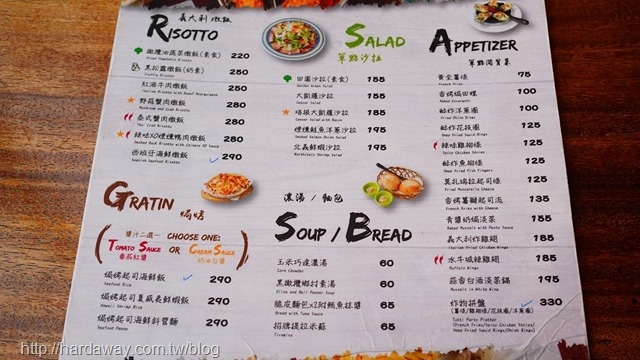 RISOTTO
義大利燉飯
橄欖油蔬菜燉飯(素食) 220
Mixed Vegetable Risotto
黑松露燉飯(奶素) 250
Truffle Risotto
紅酒牛肉燉飯 280
野菇蟹肉燉飯 280
Mushroom and Crab Risotto
泰式蟹肉燉飯 280
Thai Crab Risotto
辣味XO煙燻鴨肉燉飯 280
Smoked Duck Risotto with Chinese XO Sauce
西班牙海鮮燉飯 290
Spanish Seafood Risotto
GRATIN
焗烤
醬汁二選一 CHOOSE ONE:
TOMATO SAUCE OR CREAM SAUCE
番茄紅醬
奶油白醬
焗烤起司海鮮飯 290
Seafood Rice
焗烤起司夏威夷鮮蝦飯 290
Hawaii Shrimp Rice
焗烤起司海鮮斜管麵 290
Seafood Penne
SALAD
單點沙拉
田園沙拉(素食) 155
Garden Green Salad
大凱薩沙拉 155
Caesar Salad
培根大凱薩沙拉 185
Caesar Salad with Bacon
煙燻鮭魚洋蔥沙拉 195
Smoked Salmon Onion Salad
北義鮮蝦沙拉 195
North Italy Shrimp Salad
濃湯 / 麵包
SOUP / BREAD
玉米巧達濃湯 60
Corn Chowder
黑橄欖鄉村濃湯 60
Olive and Bell Pepper Soup
脆皮麵包x2附鮪魚抹醬 65
Bread with Tuna Sauce
招牌提拉米蘇 65
Tiramisu
APPETIZER
單點開胃菜
黃金薯條 75
French Fries
香烤焗田螺 100
Baked Escargots
酥炸洋蔥圈 100
Fried Onion Rings
酥炸花枝圈 125
Deep Fried Squid Rings
辣味雞柳條 125
Spicy Chicken Strips
酥炸魚柳條 125
Deep Fried Fish Fingers
莫扎瑞拉起司條 125
Mozzarella Cheese Sticks
香烤薯瓣起司流 135
French Fries with Cheese
青醬奶焗淡菜 155
Baked Mussels with Pesto Sauce
義大利炸雞翅 185
Italian Fried Chicken Wings
水牛城辣雞翅 185
Buffalo Wings
蒜香白酒淡菜鍋 195
Mussels in White Wine
炸物拼盤 330
(薯條/雞柳條/花枝圈/洋蔥圈)
Tutti Party Platter
(French Fries/Spicy Chicken Strips/
Deep Fried Squid Rings/Onion Rings)
http://hardaway.com.tw/blog